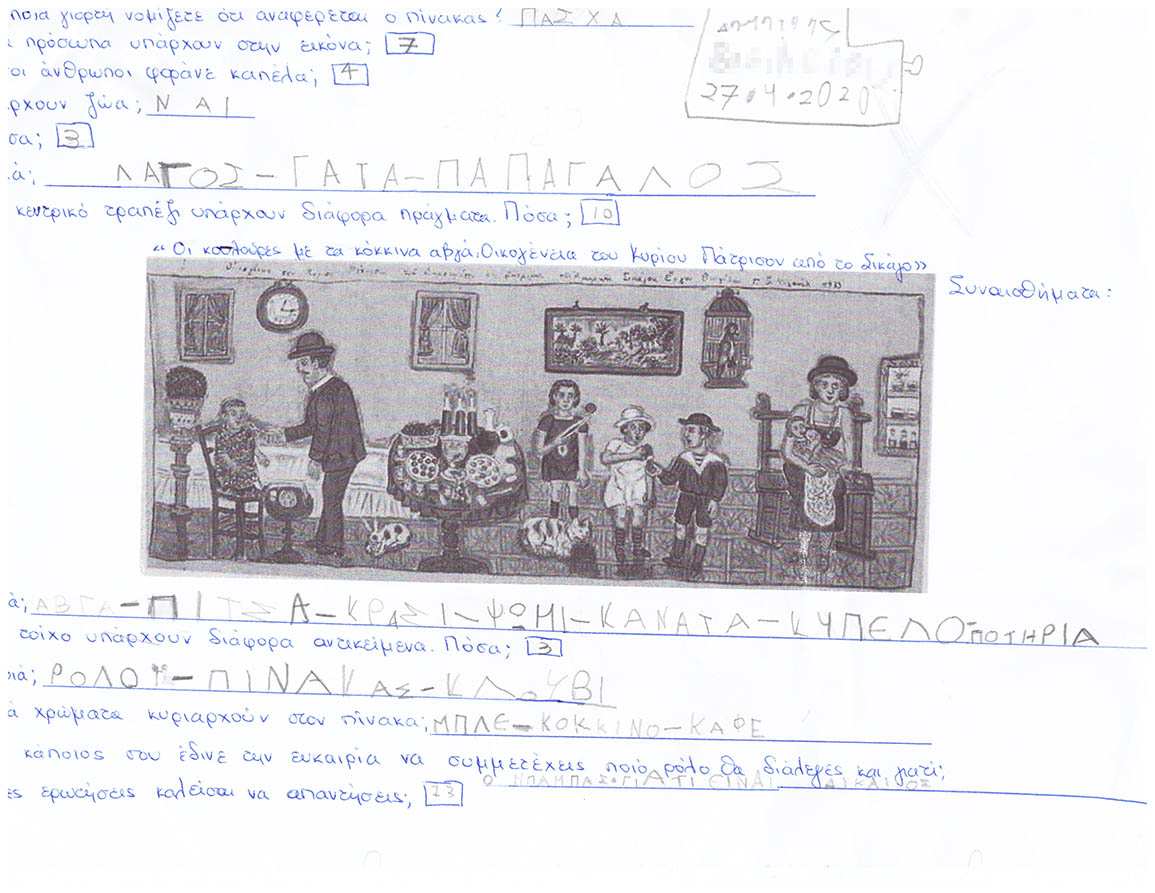 ποια γιορτή νομίζετε ότι αναφέρεται ο πίνακας; ΠΑΣΧΑ
πρόσωπα υπάρχουν στην εικόνα; 7
οι άνθρωποι φοράνε καπέλα; 4
ρχουν ζώα; ΝΑΙ
σα; 3
ά; ΛΑΓΟΣ-ΓΑΤΑ-ΠΑΠΑΓΑΛΟΣ
κεντρικό τραπέζι υπάρχουν διάφορα πράγματα. Πόσα; 10
27.4.2020
«Οι κουλούρες με τα κόκκινα αβγά, Οικογένεια του Κυρίου Πάτρισον από το Σικάγο»
Συναισθήματα:
ά; ΑΒΓΑ-ΠΙΤΣΑ-ΚΡΑΣΙ-ΨΩΜΙ-ΚΑΝΑΤΑ-ΚΥΠΕΛΟ-ΠΟΤΗΡΙΑ
τοίχο υπάρχουν διάφορα αντικείμενα. Πόσα; 3
ιά; ΡΟΛΟΪ-ΠΙΝΑΚΑΣ-ΚΛΟΥΒΙ
ά χρώματα κυριαρχούν στον πίνακα; ΜΠΛΕ-ΚΟΚΚΙΝΟ-ΚΑΦΕ
κάποιος σου έδινε την ευκαιρία να συμμετέχεις ποιό ρόλο θα διάλεγες και γιατί;
Ο ΜΠΑΜΠΑΣ ΓΙΑΤΙ ΕΙΝΑΙ ΔΙΚΑΙΟΣ
ες ερωτήσεις καλείσαι να απαντήσεις; 23